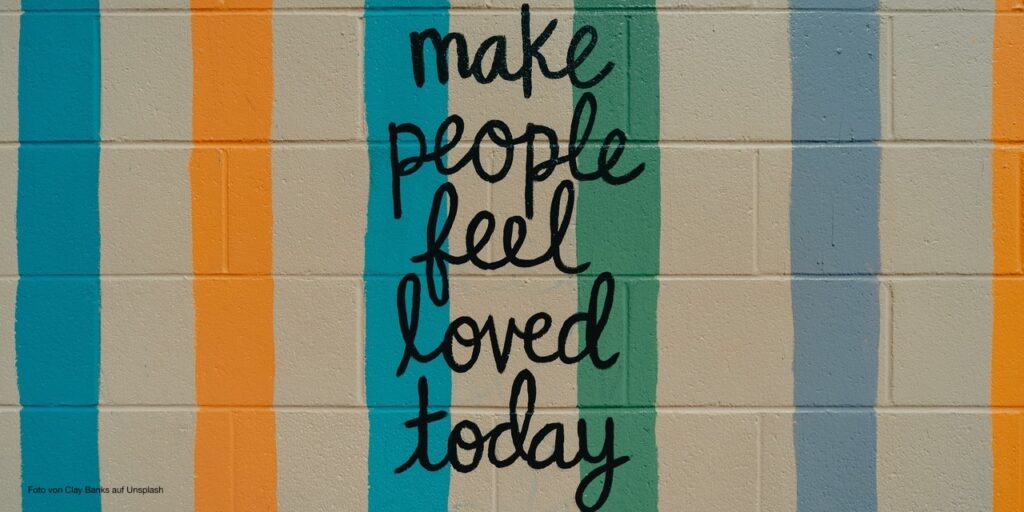 make
people
feel
loved
today
Foto von Clay Banks auf Unsplash